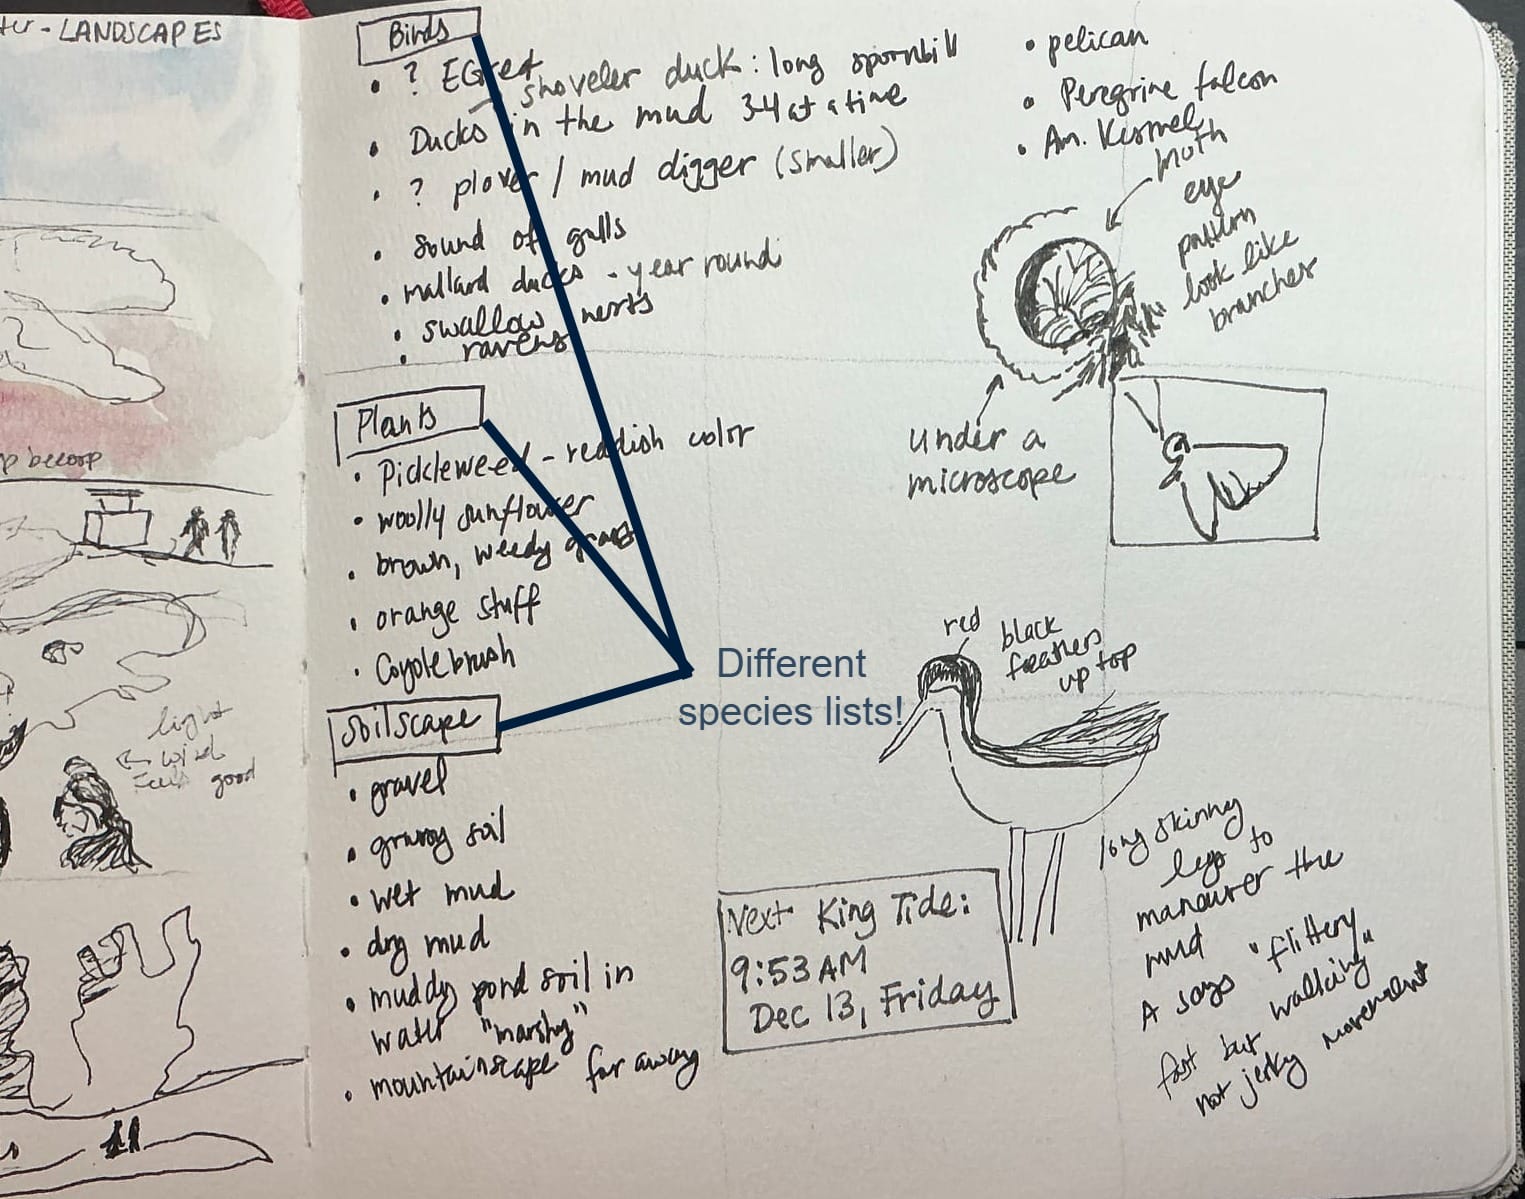 - LANDSCAPES
beloop
light
wind
Feels good
Birds
• ? EGret
→ shoveler duck: long spornbill
• Ducks in the mud 3-4 at a time
• ? plover / mud digger (smaller)
• sound of gulls
• mallard ducks - year round
• swallow nests
• ravens
• pelican
• Peregrine falcon
• Am. Kesrnel
moth
eye
pattern
look like
branches
under a
microscope
Plants
• Pickleweed - reddish color
• woolly sunflower
• brown, weedy grass
• orange stuff
• Coyotebrush
Different
species lists!
Soilscape
• gravel
• soil
• wet mud
• dry mud
• muddy pond soil in
water "marshy"
• mountainscape far away
red
black
feathers
up top
long skinny
legs to
maneuver the
mud
A says "flittery"
fast but walking
not jerky movement
Next King Tide:
9:53 AM
Dec 13, Friday